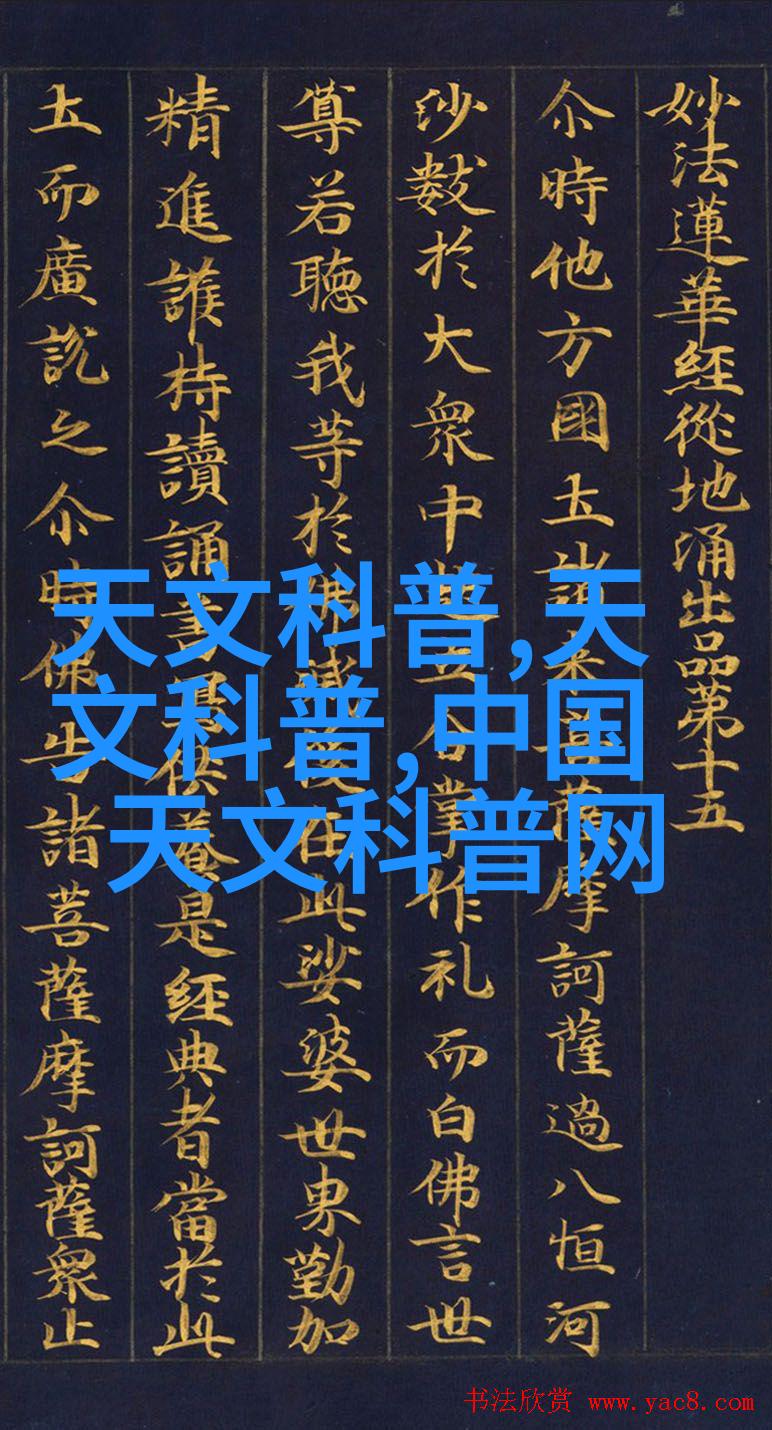 妙法蓮華經從地涌出品第十五
尒時他方國土諸來菩薩摩訶薩過八恒河
沙數於大眾中起立合掌作礼而白佛言世
尊若聽我等於佛滅後在此娑婆世界勤加
精進護持讀誦書寫供養是經典者當於此
土而廣說之尒時佛告諸菩薩摩訶薩眾止
天文科普,天
文科普,中国
天文科普网
书法欣赏 www.yac8.com